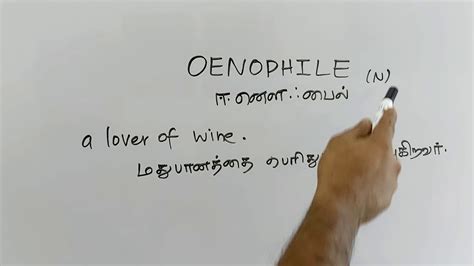 OENOPHILE (N)
ஈனௌஃபைல்
a lover of wine.
மதுபானத்தை பெரிது